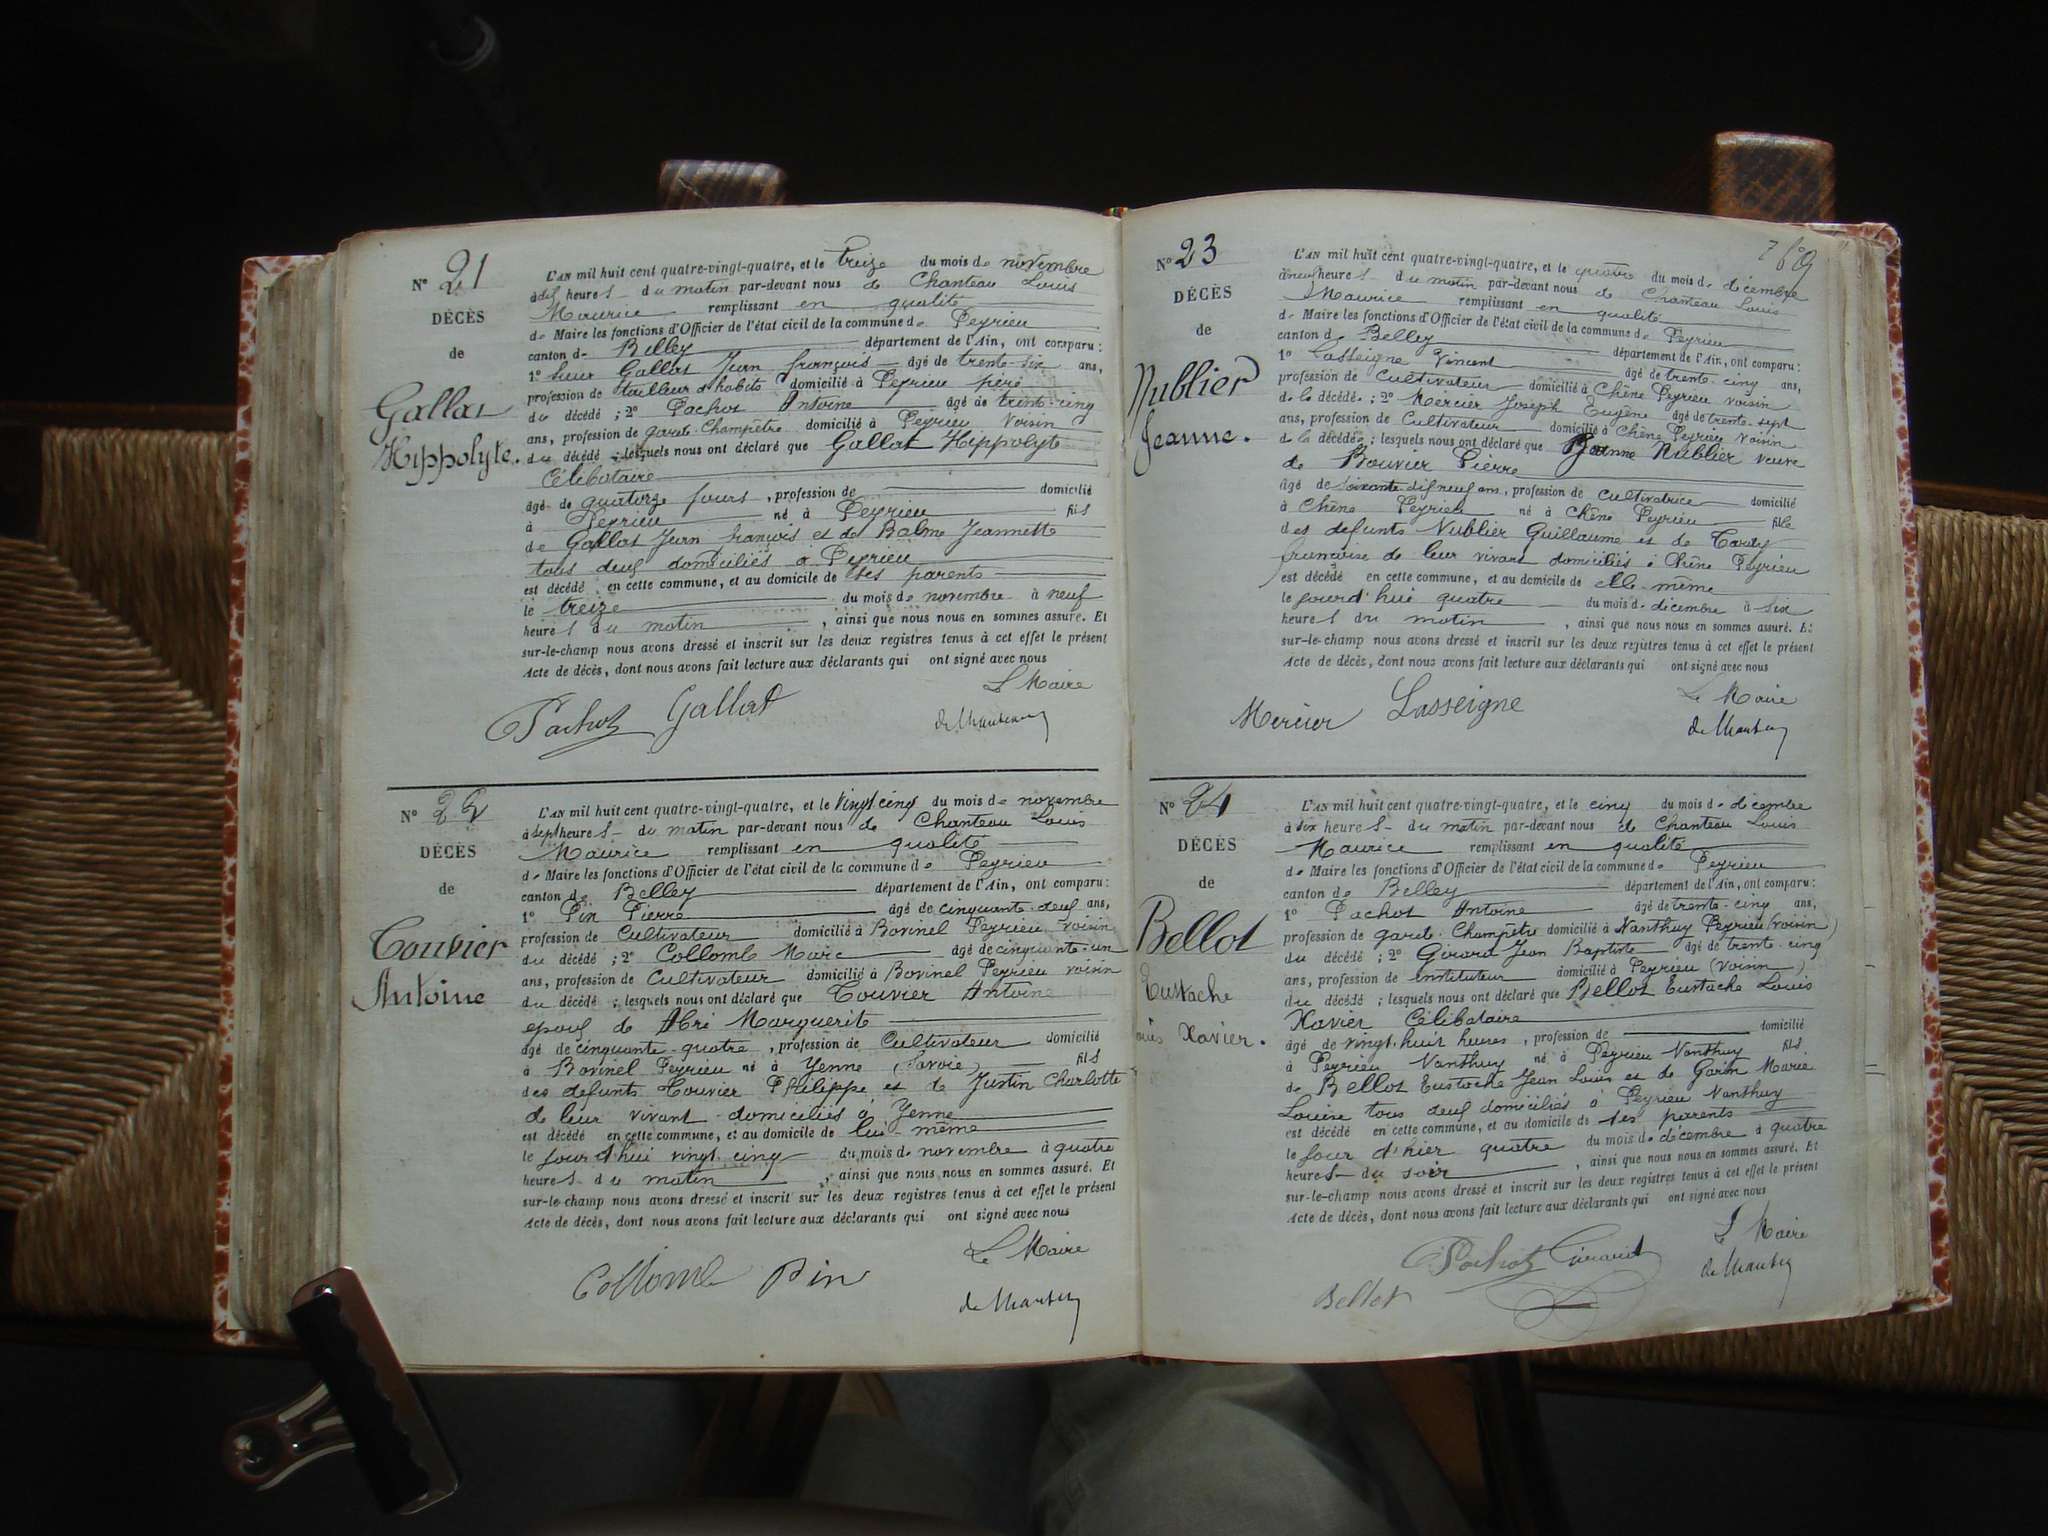 N° 21
DÉCÈS
de
Gallat
Hippolyte.
L'AN mil huit cent quatre-vingt-quatre, et le treize du mois de novembre
à dix heures du matin par-devant nous de Chanteau Louis
Maurice remplissant en qualité
de Maire les fonctions d'Officier de l'état civil de la commune de Peyrieu
canton de Belley département de l'Ain, ont comparu :
1° Gallat Jean françois âgé de trente-six ans,
profession de tailleur d'habits domicilié à Peyrieu père
du décédé ; 2° Pachot Antoine âgé de trente-cinq
ans, profession de garde-Champêtre domicilié à Peyrieu Voisin
du décédé ; lesquels nous ont déclaré que Gallat Hippolyte
Célibataire
âgé de quatorze jours, profession de domicilié
à Peyrieu né à Peyrieu fils
de Gallat Jean françois et de Balme Jeannette
tous deux domiciliés à Peyrieu
est décédé en cette commune, et au domicile de ses parents
le treize du mois de novembre à neuf
heures du matin, ainsi que nous nous en sommes assuré. Et
sur-le-champ nous avons dressé et inscrit sur les deux registres tenus à cet effet le présent
Acte de décès, dont nous avons fait lecture aux déclarants qui ont signé avec nous
Le Maire
Pachot Gallat
N° 22
DÉCÈS
de
Touvier
Antoine
L'AN mil huit cent quatre-vingt-quatre, et le Vingt-cinq du mois de novembre
à sept heures du matin par-devant nous de Chanteau Louis
Maurice remplissant en qualité
de Maire les fonctions d'Officier de l'état civil de la commune de Peyrieu
canton de Belley département de l'Ain, ont comparu :
1° Pin Pierre âgé de cinquante-deux ans,
profession de Cultivateur domicilié à Bovinel Peyrieu voisin
du décédé ; 2° Collomb Marc âgé de cinquante-un
ans, profession de Cultivateur domicilié à Bovinel Peyrieu voisin
du décédé ; lesquels nous ont déclaré que Touvier Antoine
epoux de Abri Marguerite
âgé de cinquante-quatre, profession de Cultivateur domicilié
à Bovinel Peyrieu né à Yenne (Savoie) fils
des défunts Touvier Philippe et de Justin Charlotte
de leur vivant domiciliés à Yenne
est décédé en cette commune, et au domicile de lui-même
le jourd'hui vingt-cinq du mois de novembre à quatre
heures du matin, ainsi que nous nous en sommes assuré. Et
sur-le-champ nous avons dressé et inscrit sur les deux registres tenus à cet effet le présent
Acte de décès, dont nous avons fait lecture aux déclarants qui ont signé avec nous
Le Maire
Collomb Pin
N° 23
DÉCÈS
de
Nublier
Jeanne.
L'AN mil huit cent quatre-vingt-quatre, et le quatre du mois de décembre
à neuf heures du matin par-devant nous de Chanteau Louis
Maurice remplissant en qualité
de Maire les fonctions d'Officier de l'état civil de la commune de Peyrieu
canton de Belley département de l'Ain, ont comparu :
1° Lasseigne Vincent âgé de trente-cinq ans,
profession de Cultivateur domicilié à Chêne Peyrieu voisin
de la décédée ; 2° Mercier Joseph Eugène âgé de trente-sept
ans, profession de Cultivateur domicilié à Chêne Peyrieu Voisin
de la décédée ; lesquels nous ont déclaré que Jeanne Nublier veuve
de Bouvier Pierre
âgé de soixante-dix neuf ans, profession de cultivatrice domicilié
à Chêne Peyrieu né à Chêne Peyrieu fille
des defunts Nublier Guillaume et de
françoise de leur vivant domiciliés à Chêne Peyrieu
est décédé en cette commune, et au domicile de elle-même
le jourd'hui quatre du mois de décembre à six
heures du matin, ainsi que nous nous en sommes assuré. Et
sur-le-champ nous avons dressé et inscrit sur les deux registres tenus à cet effet le présent
Acte de décès, dont nous avons fait lecture aux déclarants qui ont signé avec nous
Le Maire
Mercier Lasseigne
N° 24
DÉCÈS
de
Bellot
Eustache
Xavier.
L'AN mil huit cent quatre-vingt-quatre, et le cinq du mois de décembre
à six heures du matin par-devant nous de Chanteau Louis
Maurice remplissant en qualité
de Maire les fonctions d'Officier de l'état civil de la commune de Peyrieu
canton de Belley département de l'Ain, ont comparu :
1° Pachot Antoine âgé de trente-cinq ans,
profession de garde-Champêtre domicilié à Nanthuy Peyrieu (voisin)
du décédé ; 2° Girard Jean Baptiste âgé de trente-cinq
ans, profession de instituteur domicilié à Peyrieu (Voisin)
du décédé ; lesquels nous ont déclaré que Bellot Eustache Louis
Xavier Célibataire
âgé de vingt-huit heures, profession de domicilié
à Peyrieu Nanthuy né à Peyrieu Nanthuy fils
de Bellot Eustache Jean Louis et de Garin Marie
Louise tous deux domiciliés à Peyrieu Nanthuy
est décédé en cette commune, et au domicile de ses parents
le jour d'hier quatre du mois de décembre à quatre
heures du soir, ainsi que nous nous en sommes assuré. Et
sur-le-champ nous avons dressé et inscrit sur les deux registres tenus à cet effet le présent
Acte de décès, dont nous avons fait lecture aux déclarants qui ont signé avec nous
Le Maire
Pachot Girard
Bellot